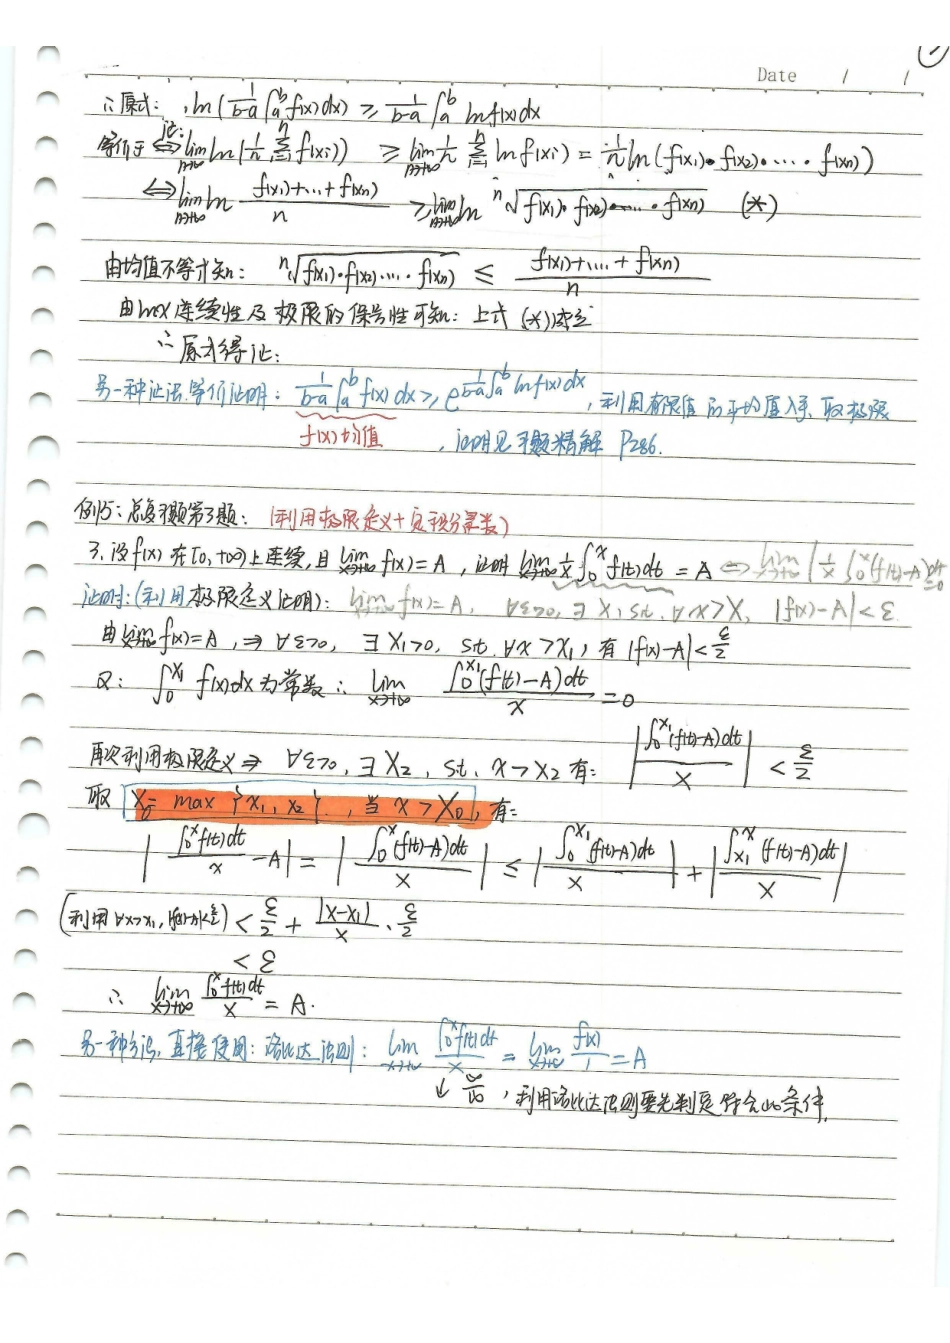 Date / /
∴原式: ln(1/(b-a) ∫_a^b f(x)dx) ≥ 1/(b-a) ∫_a^b ln f(x)dx
等价于 ⇔ 证: lim_{n→∞} ln(1/n Σ_{i=1}^n f(xi)) ≥ lim_{n→∞} 1/n Σ_{i=1}^n ln f(xi) = 1/n ln(f(x1)·f(x2)·....·f(xn))
⇔ lim_{n→∞} ln (f(x1)+...+f(xn))/n ≥ lim_{n→∞} ln ⁿ√(f(x1)·f(x2)·....·f(xn)) (*)
由均值不等式知: ⁿ√(f(x1)·f(x2)·....·f(xn)) ≤ (f(x1)+....+f(xn))/n
由lnx连续性及极限的保号性可知: 上式(*)成立
∴原式得证:
另一种证法.等价证明: 1/(b-a) ∫_a^b f(x)dx ≥ e^{1/(b-a) ∫_a^b ln f(x)dx}, 利用有限值的平均值入手、取极限
f(x)均值 , 证明见习题精解 P286.
例15: 总复习题第3题: (利用极限定义+定积分)
3. 设f(x)在[0,+∞)上连续, 且 lim_{x→+∞} f(x)=A, 证明 lim_{x→+∞} 1/x ∫_0^x f(t)dt = A ⇔ lim_{x→+∞} |1/x ∫_0^x (f(t)-A)dt =0
证明: (利用极限定义证明): lim_{x→+∞} f(x)=A, ∀ε>0, ∃X, st. ∀x>X, |f(x)-A|<ε.
由 lim_{x→+∞} f(x)=A, ⇒ ∀ε>0, ∃X1>0, st. ∀x>X1, 有|f(x)-A|<ε/2
又: ∫_0^{X1} f(x)dx为常数 ∴ lim_{x→+∞} ∫_0^{X1}(f(t)-A)dt / x =0
再次利用极限定义⇒ ∀ε>0, ∃X2, st. x>X2 有: |∫_0^{X1}(f(t)-A)dt / x| < ε/2
取 X0= max{X1, X2}, 当x>X0, 有:
|∫_0^x f(t)dt / x -A| = |∫_0^x (f(t)-A)dt / x| ≤ |∫_0^{X1} (f(t)-A)dt / x| + |∫_{X1}^x (f(t)-A)dt / x|
(利用∀x>x1, |f(x)-A|<ε/2) < ε/2 + |x-x1|/x · ε/2
< ε
∴ lim_{x→+∞} ∫_0^x f(t)dt / x = A.
另一种方法, 直接使用: 洛比达法则: lim_{x→+∞} ∫_0^x f(t)dt / x = lim_{x→+∞} f(x)/1 = A
↓ ∞/∞, 利用洛比达法则要先判定符合此条件.